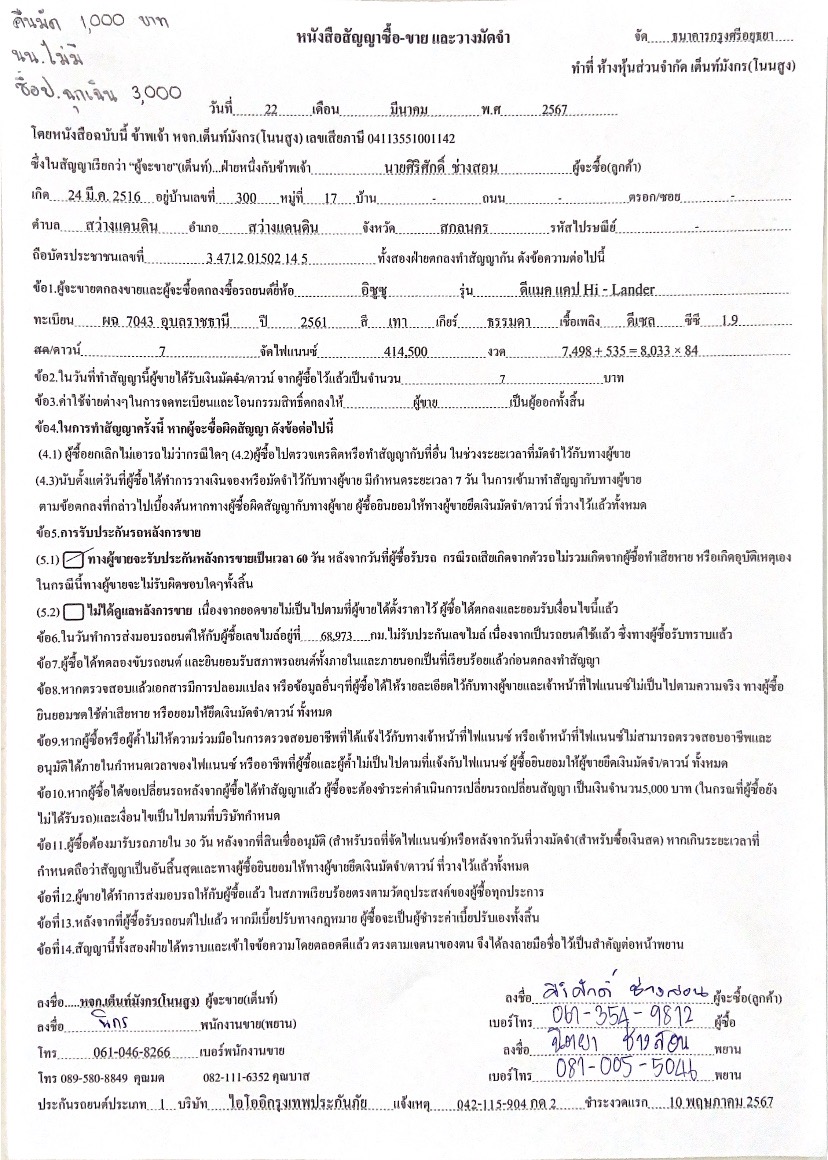 คืนมัด 1,000 บาท
นน.ไม่มี
ซื้อป.ฉุกเฉิน 3,000
หนังสือสัญญาซื้อ-ขาย และวางมัดจำ
จัด ธนาคารกรุงศรีอยุธยา
ทำที่ ห้างหุ้นส่วนจำกัด เต็นท์มังกร(โนนสูง)
วันที่ 22 เดือน มีนาคม พ.ศ 2567
โดยหนังสือฉบับนี้ ข้าพเจ้า หจก.เต็นท์มังกร(โนนสูง) เลขเสียภาษี 04113551001142
ซึ่งในสัญญาเรียกว่า “ผู้จะขาย”(เต็นท์)...ฝ่ายหนึ่งกับข้าพเจ้า นายศิริศักดิ์ ช่างสอน ผู้จะซื้อ(ลูกค้า)
เกิด 24 มี.ค. 2516 อยู่บ้านเลขที่ 300 หมู่ที่ 17 บ้าน - ถนน - ตรอก/ซอย -
ตำบล สว่างแดนดิน อำเภอ สว่างแดนดิน จังหวัด สกลนคร รหัสไปรษณีย์ -
ถือบัตรประชาชนเลขที่ 3 4712 01502 14 5 ทั้งสองฝ่ายตกลงทำสัญญากัน ดังข้อความต่อไปนี้
ข้อ1.ผู้จะขายตกลงขายและผู้จะซื้อตกลงซื้อรถยนต์ยี่ห้อ อีซูซุ รุ่น ดีแมค แคป Hi - Lander
ทะเบียน ผฉ 7043 อุบลราชธานี ปี 2561 สี เทา เกียร์ ธรรมดา เชื้อเพลิง ดีเซล ซีซี 1.9
สด/ดาวน์ 7 จัดไฟแนนซ์ 414,500 งวด 7,498 + 535 = 8,033 × 84
ข้อ2.ในวันที่ทำสัญญานี้ผู้ขายได้รับเงินมัดจำ/ดาวน์ จากผู้ซื้อไว้แล้วเป็นจำนวน 7 บาท
ข้อ3.ค่าใช้จ่ายต่างๆในการจดทะเบียนและโอนกรรมสิทธิ์ตกลงให้ ผู้ขาย เป็นผู้ออกทั้งสิ้น
ข้อ4.ในการทำสัญญาครั้งนี้ หากผู้จะซื้อผิดสัญญา ดังข้อต่อไปนี้
(4.1) ผู้ซื้อยกเลิกไม่เอารถไม่ว่ากรณีใดๆ (4.2)ผู้ซื้อไปตรวจเครดิตหรือทำสัญญากับที่อื่น ในช่วงระยะเวลาที่มัดจำไว้กับทางผู้ขาย
(4.3)นับตั้งแต่วันที่ผู้ซื้อได้ทำการวางเงินจองหรือมัดจำไว้กับทางผู้ขาย มีกำหนดระยะเวลา 7 วัน ในการเข้ามาทำสัญญากับทางผู้ขาย
ตามข้อตกลงที่กล่าวไปเบื้องต้นหากทางผู้ซื้อผิดสัญญากับทางผู้ขาย ผู้ซื้อยินยอมให้ทางผู้ขายยึดเงินมัดจำ/ดาวน์ ที่วางไว้แล้วทั้งหมด
ข้อ5.การรับประกันรถหลังการขาย
(5.1) ทางผู้ขายจะรับประกันหลังการขายเป็นเวลา 60 วัน หลังจากวันที่ผู้ซื้อรับรถ กรณีรถเสียเกิดจากตัวรถไม่รวมเกิดจากผู้ซื้อทำเสียหาย หรือเกิดอุบัติเหตุเอง
ในกรณีนี้ทางผู้ขายจะไม่รับผิดชอบใดๆทั้งสิ้น
(5.2) ไม่ได้ดูแลหลังการขาย เนื่องจากยอดขายไม่เป็นไปตามที่ผู้ขายได้ตั้งราคาไว้ ผู้ซื้อได้ตกลงและยอมรับเงื่อนไขนี้แล้ว
ข้อ6.ในวันทำการส่งมอบรถยนต์ให้กับผู้ซื้อเลขไมล์อยู่ที่ 68,973 กม.ไม่รับประกันเลขไมล์ เนื่องจากเป็นรถยนต์ใช้แล้ว ซึ่งทางผู้ซื้อรับทราบแล้ว
ข้อ7.ผู้ซื้อได้ทดลองขับรถยนต์ และยินยอมรับสภาพรถยนต์ทั้งภายในและภายนอกเป็นที่เรียบร้อยแล้วก่อนตกลงทำสัญญา
ข้อ8.หากตรวจสอบแล้วเอกสารมีการปลอมแปลง หรือข้อมูลอื่นๆที่ผู้ซื้อได้ให้รายละเอียดไว้กับทางผู้ขายและเจ้าหน้าที่ไฟแนนซ์ไม่เป็นไปตามความจริง ทางผู้ซื้อ
ยินยอมชดใช้ค่าเสียหาย หรือยอมให้ยึดเงินมัดจำ/ดาวน์ ทั้งหมด
ข้อ9.หากผู้ซื้อหรือผู้ค้ำไม่ให้ความร่วมมือในการตรวจสอบอาชีพที่ได้แจ้งไว้กับทางเจ้าหน้าที่ไฟแนนซ์ หรือเจ้าหน้าที่ไฟแนนซ์ไม่สามารถตรวจสอบอาชีพและ
อนุมัติได้ภายในกำหนดเวลาของไฟแนนซ์ หรืออาชีพที่ผู้ซื้อและผู้ค้ำไม่เป็นไปตามที่แจ้งกับไฟแนนซ์ ผู้ซื้อยินยอมให้ผู้ขายยึดเงินมัดจำ/ดาวน์ ทั้งหมด
ข้อ10.หากผู้ซื้อได้ขอเปลี่ยนรถหลังจากผู้ซื้อได้ทำสัญญาแล้ว ผู้ซื้อจะต้องชำระค่าดำเนินการเปลี่ยนรถเปลี่ยนสัญญา เป็นเงินจำนวน5,000 บาท (ในกรณที่ผู้ซื้อยัง
ไม่ได้รับรถ)และเงื่อนไขเป็นไปตามที่บริษัทกำหนด
ข้อ11.ผู้ซื้อต้องมารับรถภายใน 30 วัน หลังจากที่สินเชื่ออนุมัติ (สำหรับรถที่จัดไฟแนนซ์)หรือหลังจากวันที่วางมัดจำ(สำหรับซื้อเงินสด) หากเกินระยะเวลาที่
กำหนดถือว่าสัญญาเป็นอันสิ้นสุดและทางผู้ซื้อยินยอมให้ทางผู้ขายยึดเงินมัดจำ/ดาวน์ ที่วางไว้แล้วทั้งหมด
ข้อที่12.ผู้ขายได้ทำการส่งมอบรถให้กับผู้ซื้อแล้ว ในสภาพเรียบร้อยตรงตามวัตถุประสงค์ของผู้ซื้อทุกประการ
ข้อที่13.หลังจากที่ผู้ซื้อรับรถยนต์ไปแล้ว หากมีเบี้ยปรับทางกฎหมาย ผู้ซื้อจะเป็นผู้ชำระค่าเบี้ยปรับเองทั้งสิ้น
ข้อที่14.สัญญานี้ทั้งสองฝ่ายได้ทราบและเข้าใจข้อความโดยตลอดดีแล้ว ตรงตามเจตนาของตน จึงได้ลงลายมือชื่อไว้เป็นสำคัญต่อหน้าพยาน
ลงชื่อ.....หจก.เต็นท์มังกร(โนนสูง) ผู้จะขาย(เต็นท์) ลงชื่อ ศิริศักดิ์ ช่างสอน ผู้จะซื้อ(ลูกค้า)
ลงชื่อ พนักงานขาย(พยาน) เบอร์โทร 061-354-9812 ผู้ซื้อ
โทร 061-046-8266 เบอร์พนักงานขาย ลงชื่อ นิตยา ช่างสอน พยาน
โทร 089-580-8849 คุณมด 082-111-6352 คุณบาส เบอร์โทร 081-005-5046 พยาน
ประกันรถยนต์ประเภท 1 บริษัท ไอโออิกรุงเทพประกันภัย แจ้งเหตุ 042-115-904 กด 2 ชำระงวดแรก 10 พฤษภาคม 2567